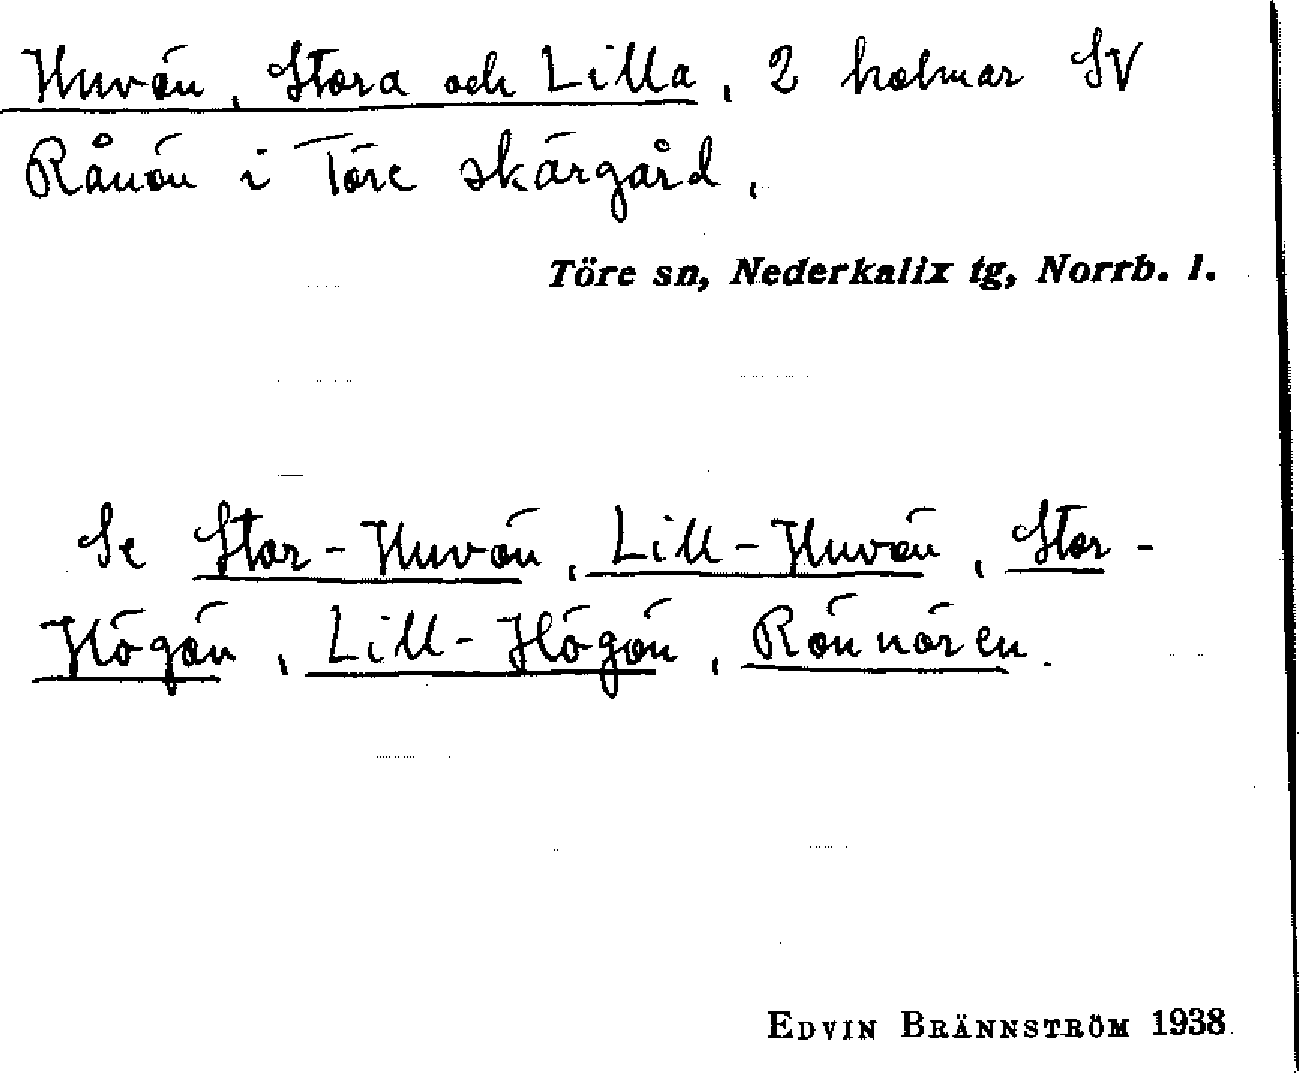 Huvön, Stora och Lilla, 2 holmar SV
Rånön i Töre skärgård.
Töre sn, Nederkalix tg, Norrb. l.
Se Stor-Huvön, Lill-Huvön, Stor-
Högön, Lill-Högön, Rönnören.
EDVIN BRÄNNSTRÖM 1938